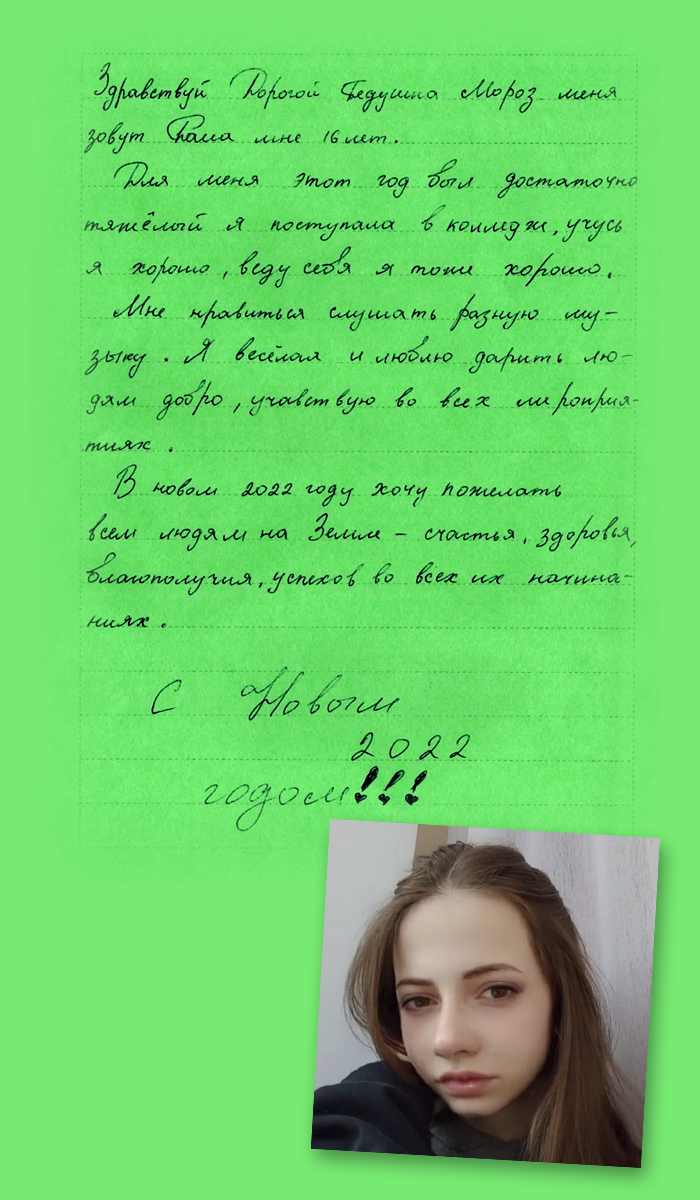 Здравствуй Дорогой Дедушка Мороз меня
зовут мне 16 лет.
Для меня этот год был достаточно
тяжёлый я поступала в колледж, учусь
я хорошо, веду себя я тоже хорошо.
Мне нравиться слушать разную му-
зыку. Я весёлая и люблю дарить лю-
дям добро, учавствую во всех мероприя-
тиях.
В новом 2022 году хочу пожелать
всем людям на Земле – счастья, здоровья,
благополучия, успехов во всех их начина-
ниях.
С Новым
2022
годом!!!